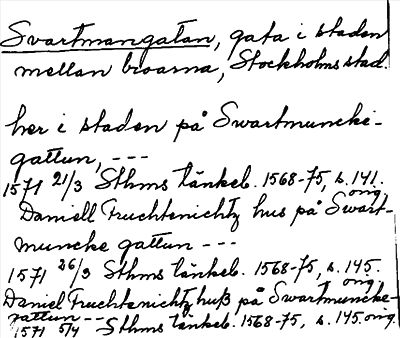 Svartmangatan, gata i staden
mellan broarna, Stockholms stad.
her i staden på Swartmuncke-
gattun, ---
1571 21/3 Sthms tänkeb. 1568-75, s. 141.
orig.
Daniell Fruchtenichtz hus på Swart-
muncke gattun ---
1571 26/3 Sthms tänkeb. 1568-75, s. 145.
orig.
Daniel Fruchtenichtz huß på Swartmuncke-
gattun --
1571 5/4 Sthms tänkeb. 1568-75, s. 145. orig.